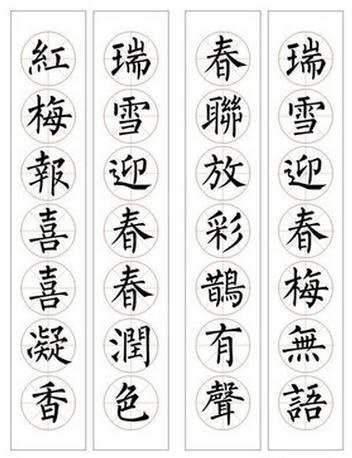 瑞雪迎春梅無語
春聯放彩鵲有聲
瑞雪迎春春潤色
紅梅報喜喜凝香